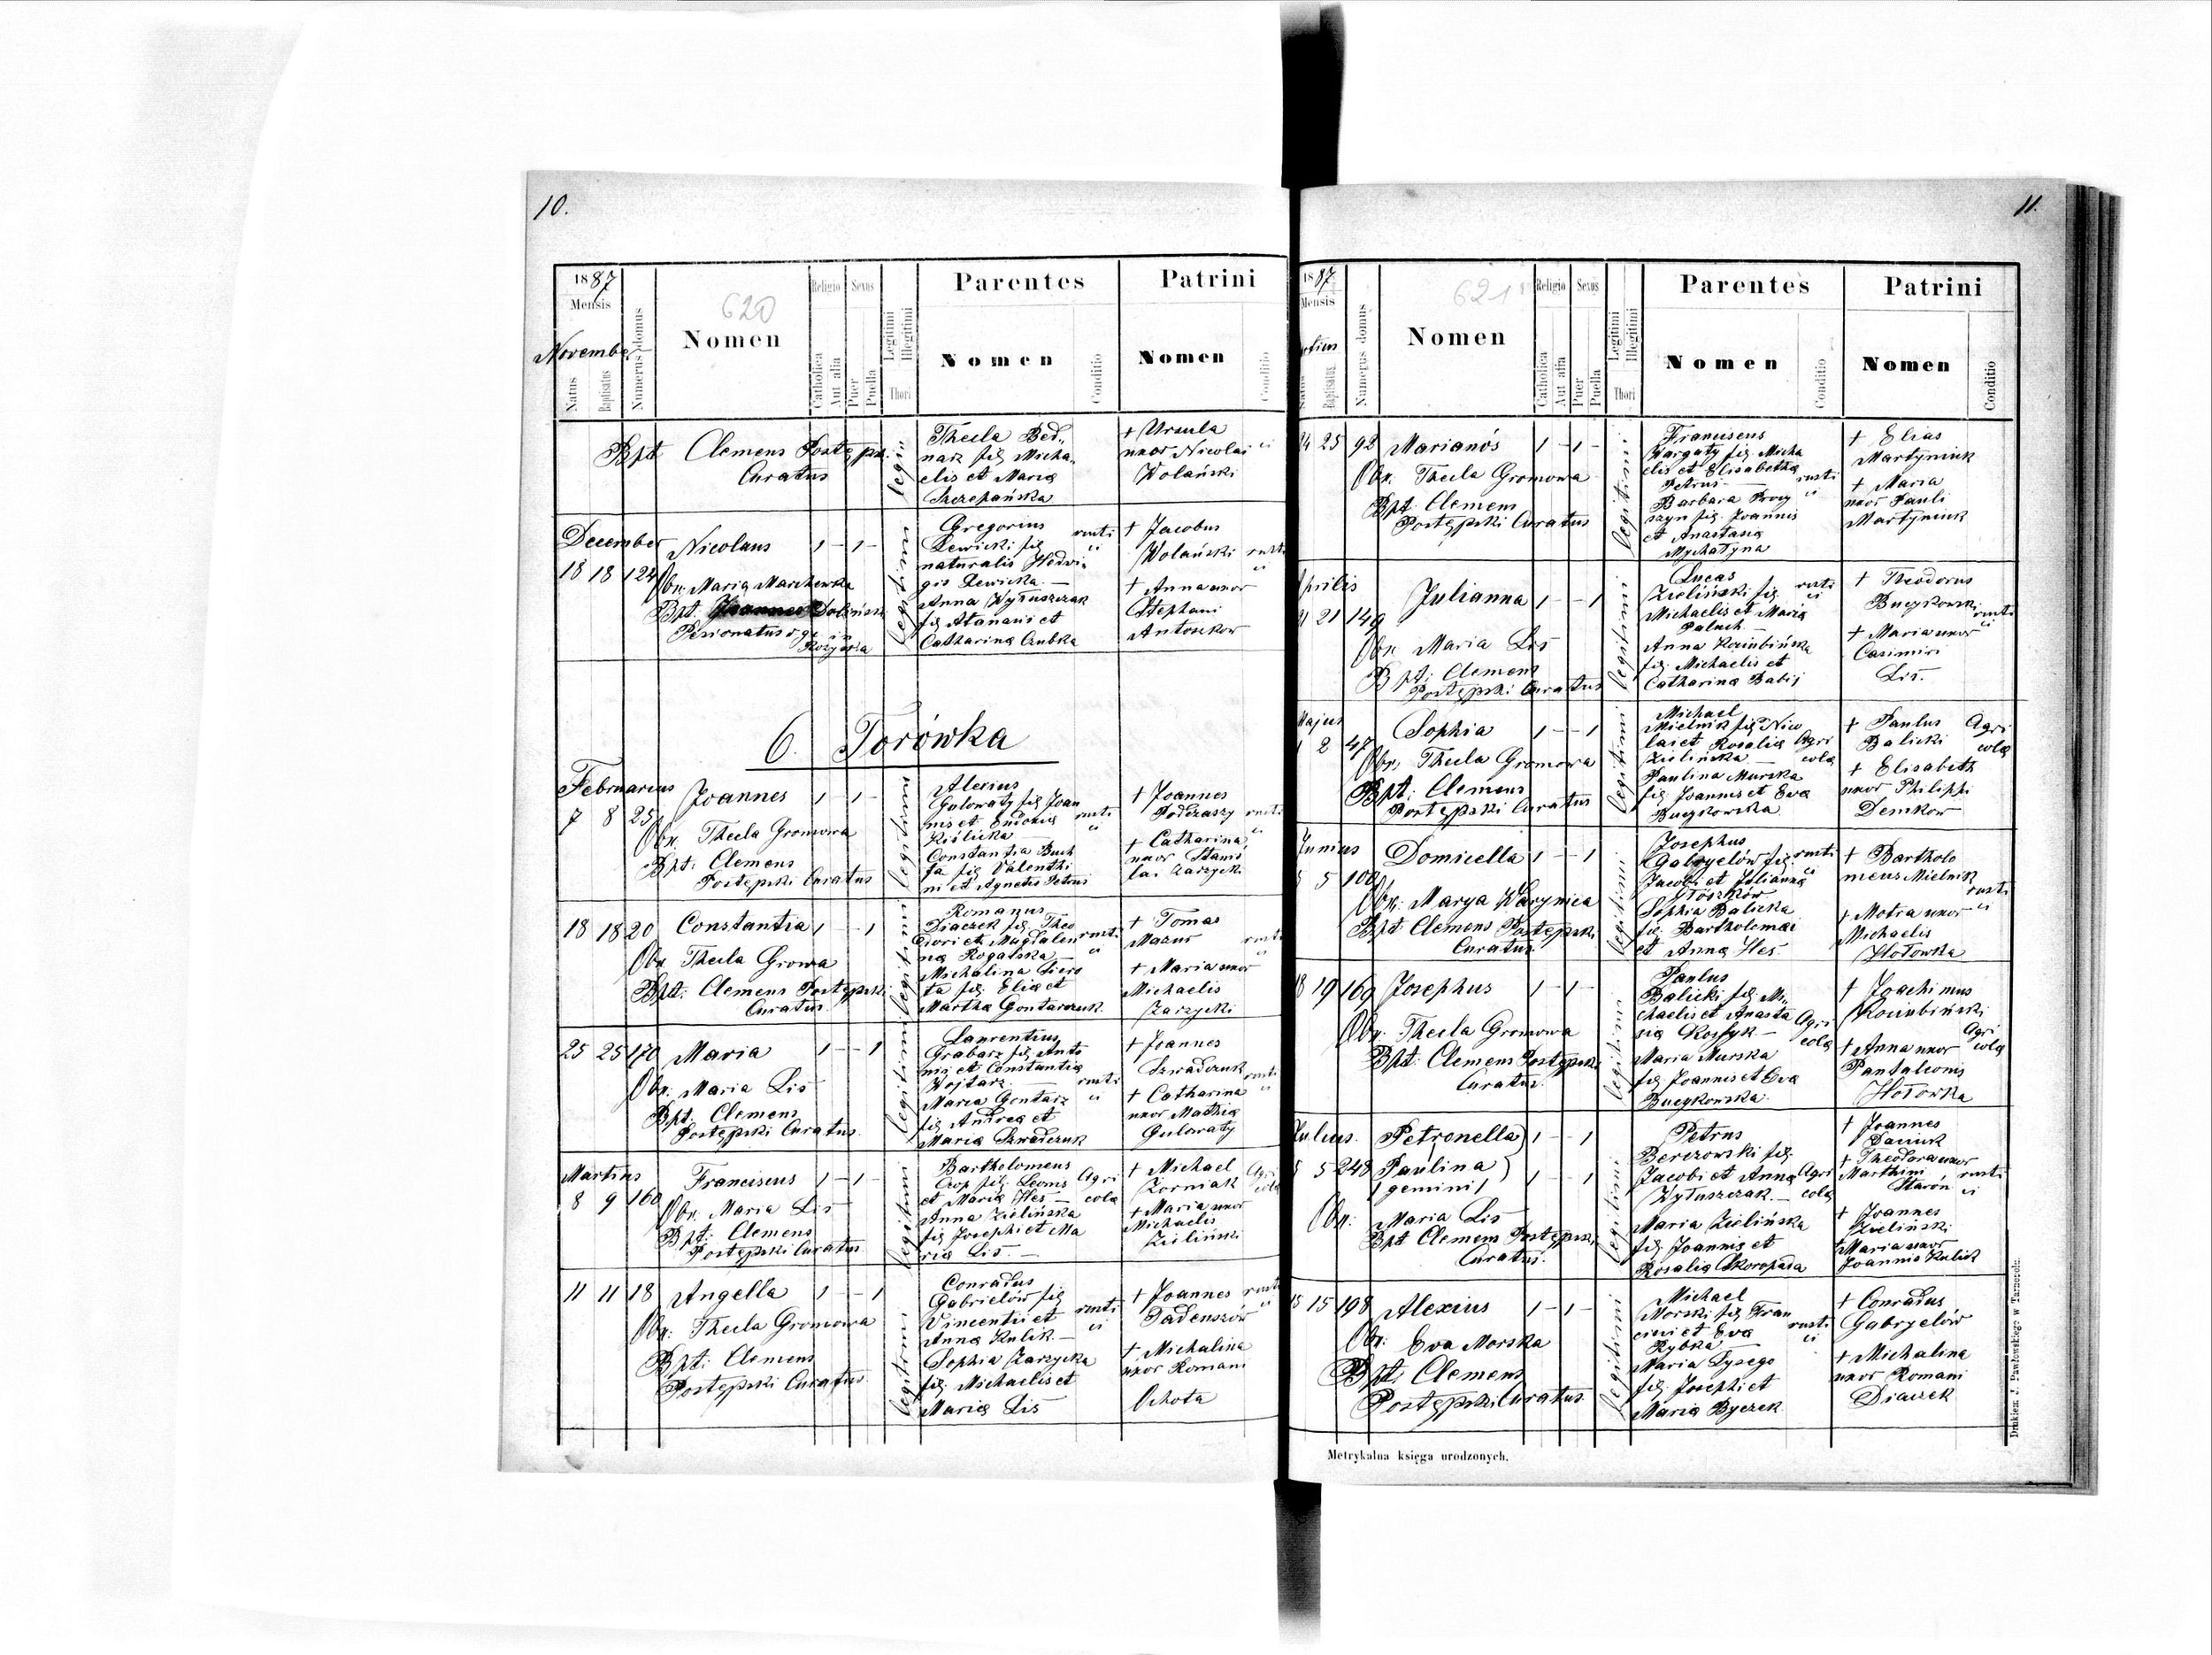 10.
1887
Mensis
November
Natus
Baptisatus
Numerus domus
620
Nomen
Religio
Catholica
Aut alia
Sexus
Puer
Puella
Legitimi
Illegitimi
Thori
Parentes
Nomen
Conditio
Patrini
Nomen
Conditio
Bpt Clemens Postępski
Curatus
Thecla Bed„
narz fig Micha„
elis et Maria
Szczepańska
+ Ursula
uxor Nicolai
Wolański
December
18 18 124
Nicolaus 1 - 1 -
Obv. Maria Marchewka
Bpt. Doliński
in
legitimi
Gregorius
Lewicki fig
naturalis Hedwi„
gis Lewicka —
Anna Wytuszczak
fig Atanasii et
Catharina Czubka
rusti
ci
+ Jacobus
Wolański
+ Anna uxor
Stephani
Antoszkow
rusti
ci
6. Torówka
Februarius
7 8 25
Joannes 1 - 1 -
Obv. Thecla Gromowa
Bpt. Clemens
Postępski Curatus
legitimi
Alexius
Gulowaty fig Joan
nis et Eudoxia
Kiślicka —
Constantia Buch
ta fig Valenthi
ni et Agnetis Petrus
rusti
ci
+ Joannes
Podczaszy
+ Catharina
uxor Stanis
lai Zarzycki
rusti
ci
18 18 20
Constantia 1 - - 1
Obv. Thecla Growa
Bpt: Clemens Postępski
Curatus
legitimi
Romanus
Diaczek fig Theo
dori et Magdalen
na Rogalska —
Michalina Siero
ta fig. Elia et
Martha Gontarczuk
rusti
ci
+ Tomas
Mazur
+ Maria uxor
Michaelis
Zarzycki
rusti
25 25 170
Maria 1 - - 1
Obv. Maria Lis
Bpt. Clemens
Postępski Curatus
legitimi
Laurentius
Grabarz fig Anto
nii et Constantia
Wojtarz —
Maria Gontarz
fig Andrea et
Maria Szwadczuk
rusti
ci
+ Joannes
Szwadczuk
+ Catharina
uxor Mathia
Gulowaty
rusti
ci
Martius
8 9 160
Franciscus 1 - 1 -
Obv. Maria Lis
Bpt: Clemens
Postępski Curatus
legitimi
Bartholomeus
Czop fig. Leonis
et Maria Hes —
Anna Zielińska
fig Josephi et Ma
ria Lis —
Agri
cola
+ Michael
Zorniak
+ Maria uxor
Michaelis
Zieliński
Agri
cola
11 11 18
Angella 1 - - 1
Obv: Thecla Gromowa
Bpt: Clemens
Postępski Curatus
legitimi
Conradus
Gabrielów fig
Vincentii et
Anna Kulik —
Sophia Zarzycka
fig Michaelis et
Maria Lis
rusti
ci
+ Joannes
Tadeuszów
+ Michalina
uxor Romani
Ochota
rusti
ci
11.
1887
Mensis
Natus
Baptisatus
Numerus domus
621
Nomen
Religio
Catholica
Aut alia
Sexus
Puer
Puella
Legitimi
Illegitimi
Thori
Parentes
Nomen
Conditio
Patrini
Nomen
Conditio
25 92
Marianós 1 - 1 -
Obv. Thecla Gromowa
Bpt. Clemens
Postępski Curatus
legitimi
Franciscus
Wargaty fig Micha
elis et Elisabetha
Petrus —
Barbara Procy
szyn fig. Joannis
et Anastasia
Mychatyna
rusti
ci
+ Elias
Martyniuk
+ Maria
uxor Pauli
Martyniuk
Aprilis
21 149
Julianna 1 - - 1
Obv. Maria Lis
Bpt: Clemens
Postępski Curatus
legitimi
Lucas
Zieliński fig
Michaelis et Maria
Paluch —
Anna Kaimbińska
fig. Michaelis et
Catharina Babij
rusti
ci
+ Theodorus
Bucykowski
+ Maria uxor
Casimiri
Lis.
rusti
ci
Majus
1 2 47
Sophia 1 - - 1
Obv. Thecla Gromowa
Bpt: Clemens
Postępski Curatus
legitimi
Michael
Mielnik fig Nico
lai et Rosalia
Zielińska —
Paulina Murska
fig Joannis et Eva
Bucykowska
Agri
cola
+ Paulus
Balicki
+ Elisabeth
uxor Philiphi
Demkow
Agri
cola
Junius
5 5 100
Domicella 1 - - 1
Obv. Marya Warynica
Bpt. Clemens Postępski
Curatus
legitimi
Josephus
Gabryelów fig
Jacobi et Julianna
Wtoszków
Sophia Balicka
fig. Bartholomai
et Anna Hes
rusti
ci
+ Bartholo
meus Mielnik
+ Motra uxor
Michaelis
Hotowka
rusti
ci
18 19 169
Josephus 1 - 1 -
Obv. Thecla Gromowa
Bpt: Clemens Postępski
Curatus
legitimi
Paulus
Balicki fig Mi„
chaelis et Anasta
sia Kossyk —
Maria Murska
fig Joannis et Eva
Bucykowska
Agri
cola
+ Joachimus
Koimbiński
+ Anna uxor
Pantaleonis
Hotowka
Agri
cola
Julius.
5 5 248
Petronella) 1 - - 1
Paulina ) 1 - - 1
/gemini/
Obv: Maria Lis
Bpt Clemens Postępski
Curatus.
legitimi
Petrus
Berezowski fig.
Jacobi et Anna
Wytuszczak. —
Maria Zielińska
fig Joannis et
Rosalia Skoropada
Agri
cola
+ Joannes
Daciuk
+ Theodora uxor
Marthini
Staróń
+ Joannes
Zieliński
+ Maria uxor
Joannis Kulick
rusti
ci
15 15 198
Alexius 1 - 1 -
Obv: Eva Morska
Bpt. Clemens
Postępski Curatus
legitimi
Michael
Morski fig Fran
cisci et Eva
Rybka —
Maria Lysego
fig Josephi et
Maria Byczek
rusti
ci
+ Conradus
Gabryelów
+ Michalina
uxor Romani
Diaczek
Metrykalna księga urodzonych.
Drukiem J. Pawłowskiego w Tarnopolu.